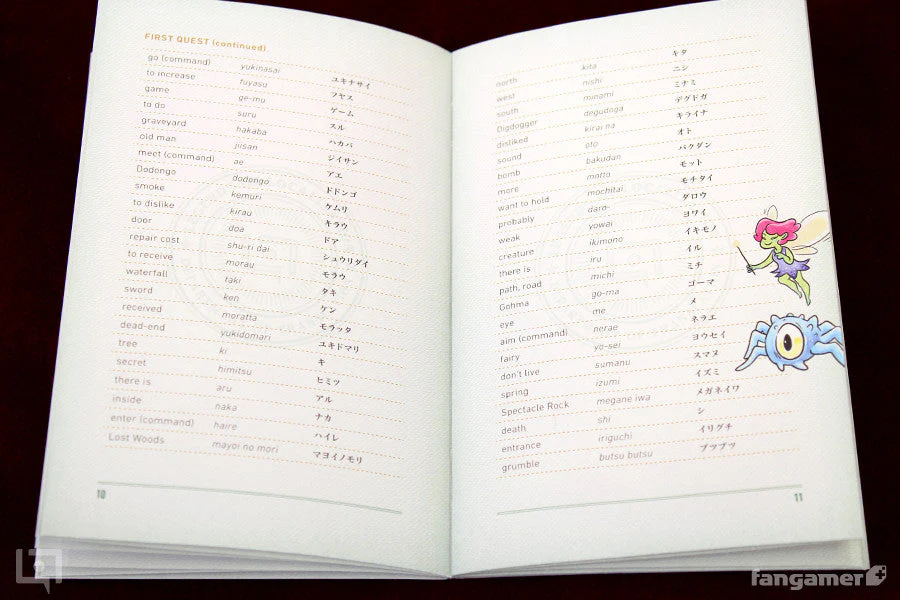 FIRST QUEST (continued)
go (command) yukinasai ユキナサイ
to increase fuyasu フヤス
game ge-mu ゲーム
to do suru スル
graveyard hakaba ハカバ
old man jiisan ジイサン
meet (command) ae アエ
Dodongo dodongo ドドンゴ
smoke kemuri ケムリ
to dislike kirau キラウ
door doa ドア
repair cost shu-ri dai シュウリダイ
to receive morau モラウ
waterfall taki タキ
sword ken ケン
received moratta モラッタ
dead-end yukidomari ユキドマリ
tree ki キ
secret himitsu ヒミツ
there is aru アル
inside naka ナカ
enter (command) haire ハイレ
Lost Woods mayoi no mori マヨイノモリ
10
north kita キタ
west nishi ニシ
south minami ミナミ
Digdogger degudoga デグドガ
disliked kirai na キライナ
sound oto オト
bomb bakudan バクダン
more motto モット
want to hold mochitai モチタイ
probably daro- ダロウ
weak yowai ヨワイ
creature ikimono イキモノ
there is iru イル
path, road michi ミチ
Gohma go-ma ゴーマ
eye me メ
aim (command) nerae ネラエ
fairy yo-sei ヨウセイ
don't live sumanu スマヌ
spring izumi イズミ
Spectacle Rock megane iwa メガネイワ
death shi シ
entrance iriguchi イリグチ
grumble butsu butsu ブツブツ
11
fangamer